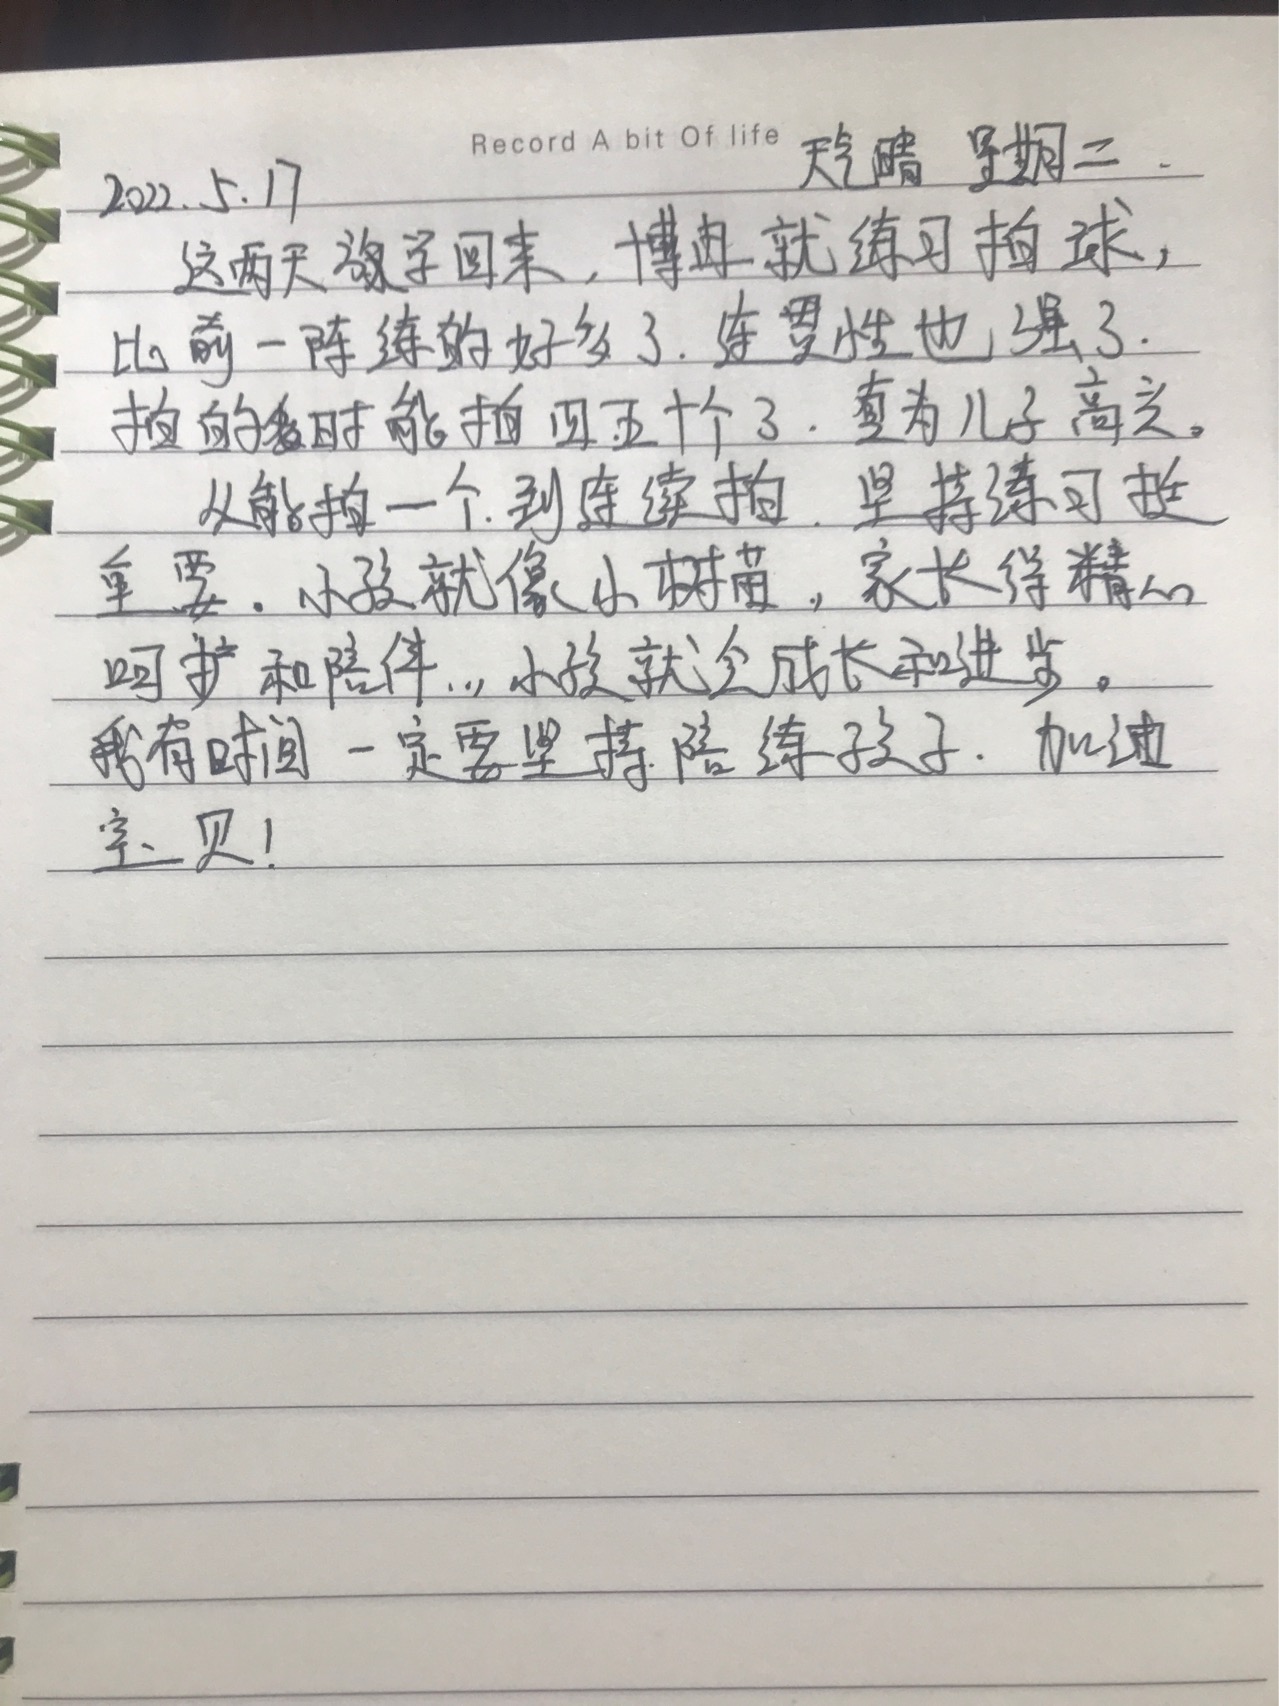 Record A bit Of life
2022.5.17 天气晴 星期二.
这两天放学回来,博冉就练习拍球,
比前一阵练的好多了.连贯性也强了.
拍的多时能拍四五十个了.真为儿子高兴。
从能拍一个.到连续拍.坚持练习挺
重要。小孩就像小树苗,家长得精心
呵护和陪伴…小孩就会成长和进步。
我有时间一定要坚持陪练孩子.加油
宝贝!